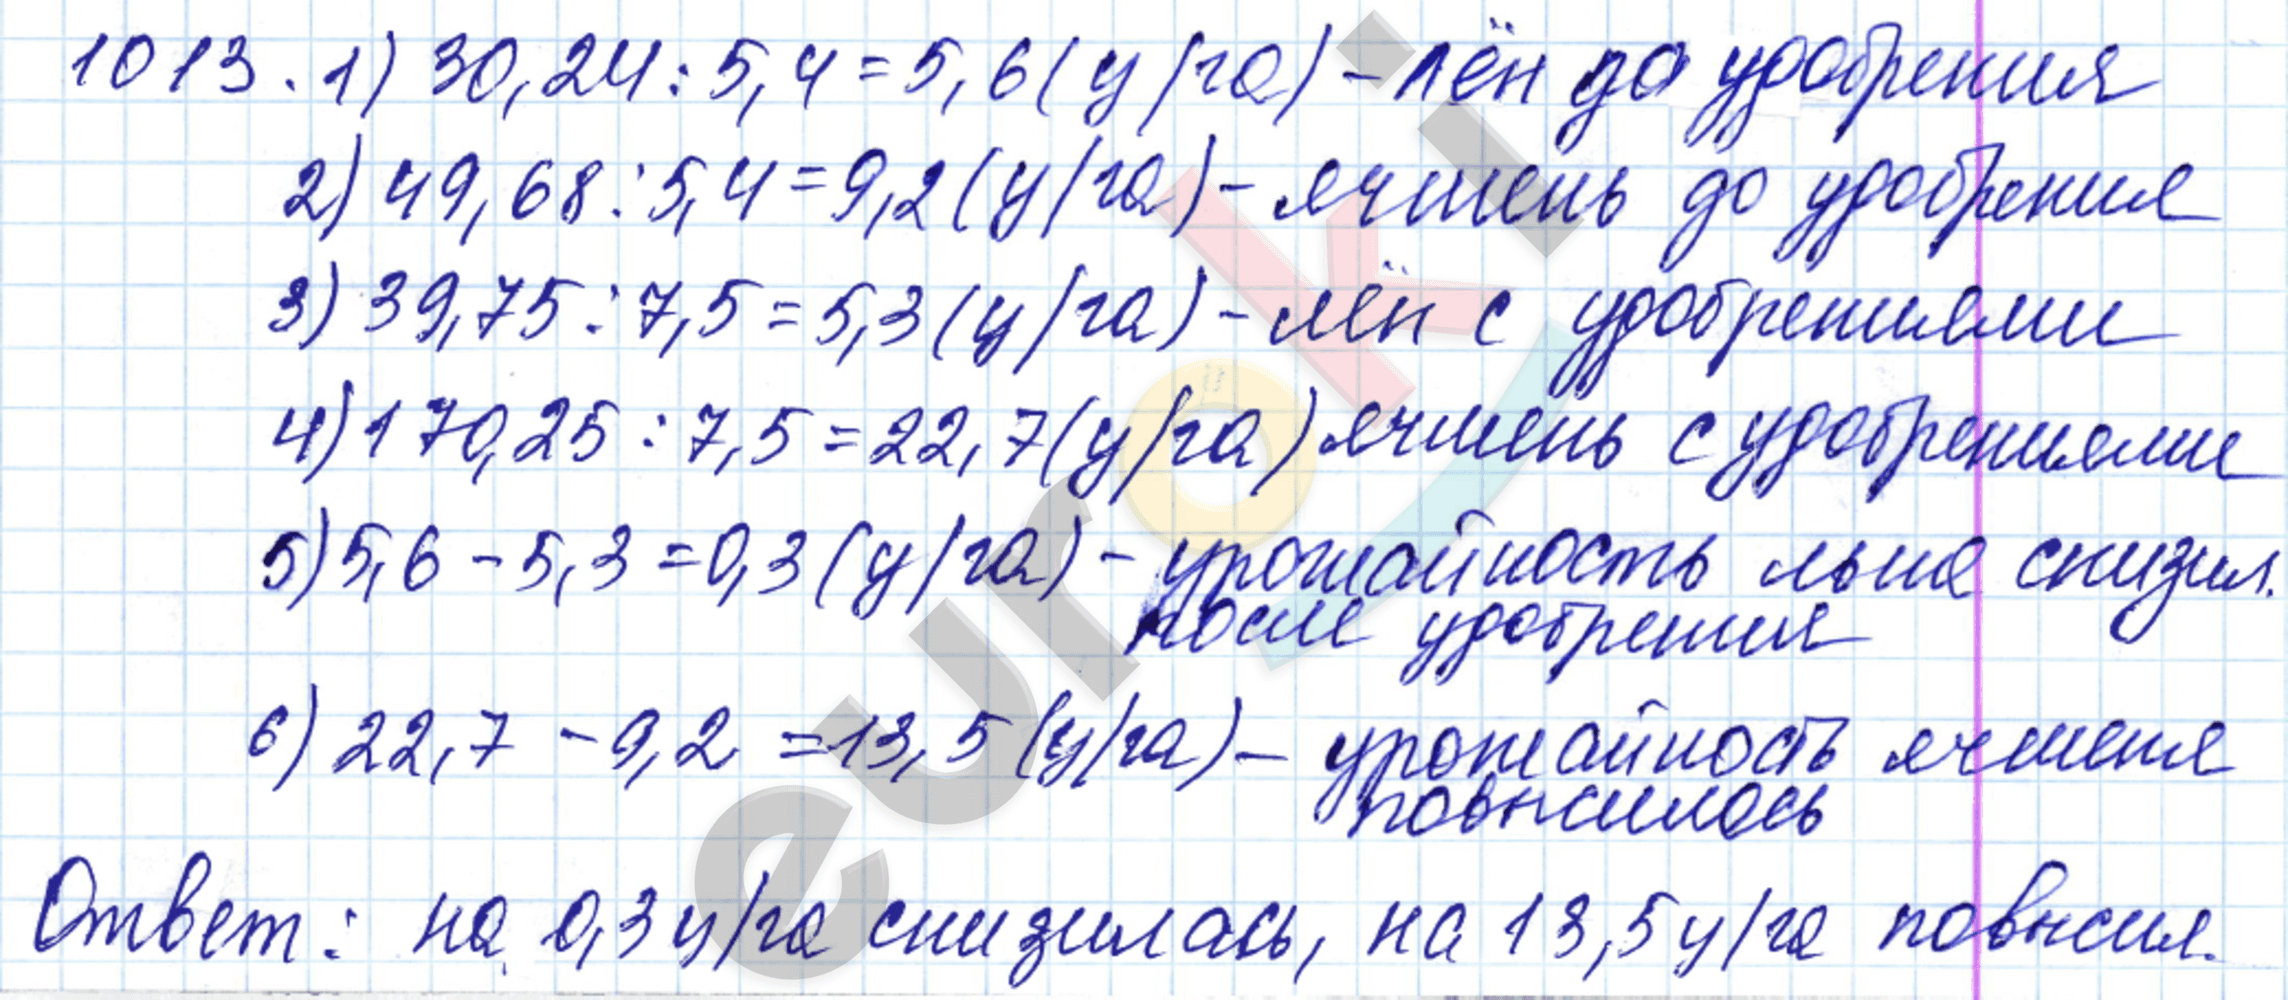 1013. 1) 30,24 : 5,4 = 5,6 (ц/га) - лён до удобрения
2) 49,68 : 5,4 = 9,2 (ц/га) - ячмень до удобрения
3) 39,75 : 7,5 = 5,3 (ц/га) - лён с удобрениями
4) 170,25 : 7,5 = 22,7 (ц/га) ячмень с удобрениями
5) 5,6 - 5,3 = 0,3 (ц/га) - урожайность льна снизил.
после удобрения
6) 22,7 - 9,2 = 13,5 (ц/га) - урожайность ячменя
повысилось
Ответ: на 0,3 ц/га снизилась, на 13,5 ц/га повысил.
euroki